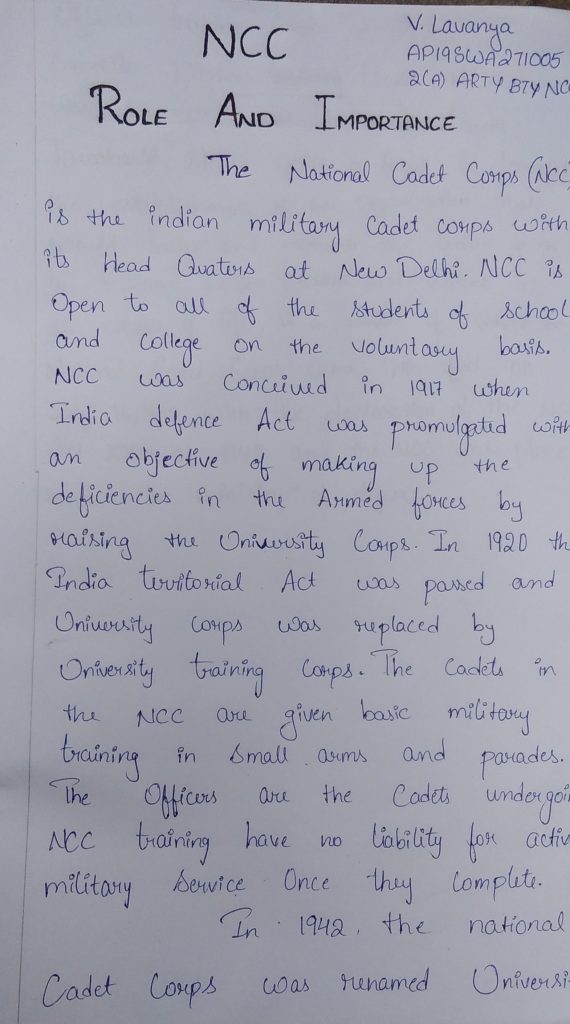 NCC
V. Lavanya
AP19SWA271005
2(A) ARTY BTY NC
ROLE AND IMPORTANCE
The National Cadet Corps (NCC)
is the indian military Cadet corps with
its Head Quaters at New Delhi. NCC is
Open to all of the students of school
and college on the voluntary basis.
NCC was Conceived in 1917 when
India defence Act was promulgated with
an objective of making up the
deficiencies in the Armed forces by
raising the University Corps. In 1920 th
India territorial Act was passed and
University corps was replaced by
University training Corps. The Cadets in
the NCC are given basic military
training in small arms and parades.
The Officers are the Cadets undergoi
NCC training have no liability for activ
military service Once they Complete.
In 1942, the national
Cadet Corps was renamed Universi